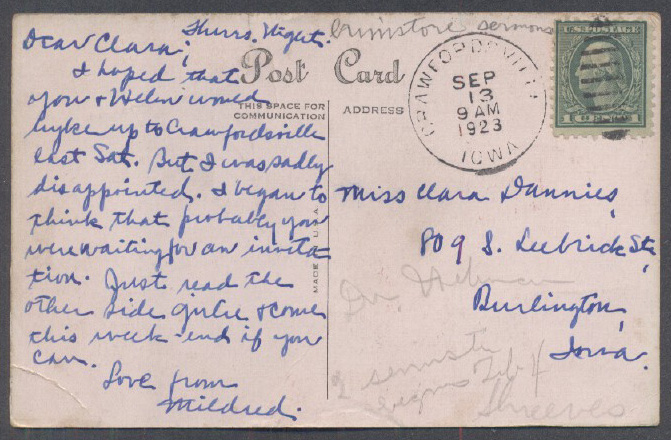 Thurs. Night.
brimstone sermons
Dear Clara;
I hoped that
you & Helen would
hyke up to Crawfordsville
last Sat. But I was sadly
disappointed. I began to
think that probably you
were waiting for an invita
tion. Just read the
other side girlie & come
this week-end if you
can.
Love from
Mildred.
Post Card
THIS SPACE FOR
COMMUNICATION
ADDRESS
MADE IN U.S.A.
CRAWFORDSVILLE
SEP
13
9 AM
1923
IOWA
U.S. POSTAGE
Miss Clara Dannies,
809 S. Leebrick St.,
Burlington,
Iowa.
Dr
2
Feb 4
Shreeves